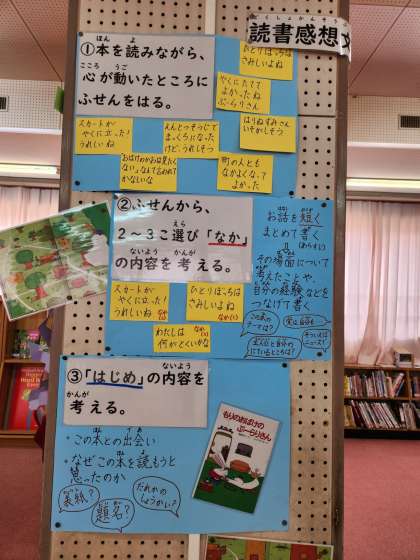 読書感想文
どくしょかんそう
①本を読みながら、
心が動いたところに
ふせんをはる。
ひとりぼっちは
さみしいよね
やくにたてて
よかったね
ぶーらりさん
スカートが
やくに立った!
うれしいね
えんとつそうじで
まっくろになった
けど、うれしそう
はりねずみさん
いそがしそう
町の人とも
なかよくなって
よかった
②ふせんから、
2～3こ選び「なか」
の内容を考える。
スカートが
やくに立った!
うれしいね
ひとりぼっちは
さみしいよね
わたしは
何がとくいかな
お話を短く
まとめて書く
(あらすじ)
その場面について
考えたことや、
自分の経験などを
つなげて書く
この本の
テーマは?
主人公と自分の
にているところは?
③「はじめ」の内容を
考える。
・この本との出会い
・なぜこの本を読もうと
思ったのか
表紙?
題名?
だれかの
しょうかい?
もりのおばけの
ぶーらりさん